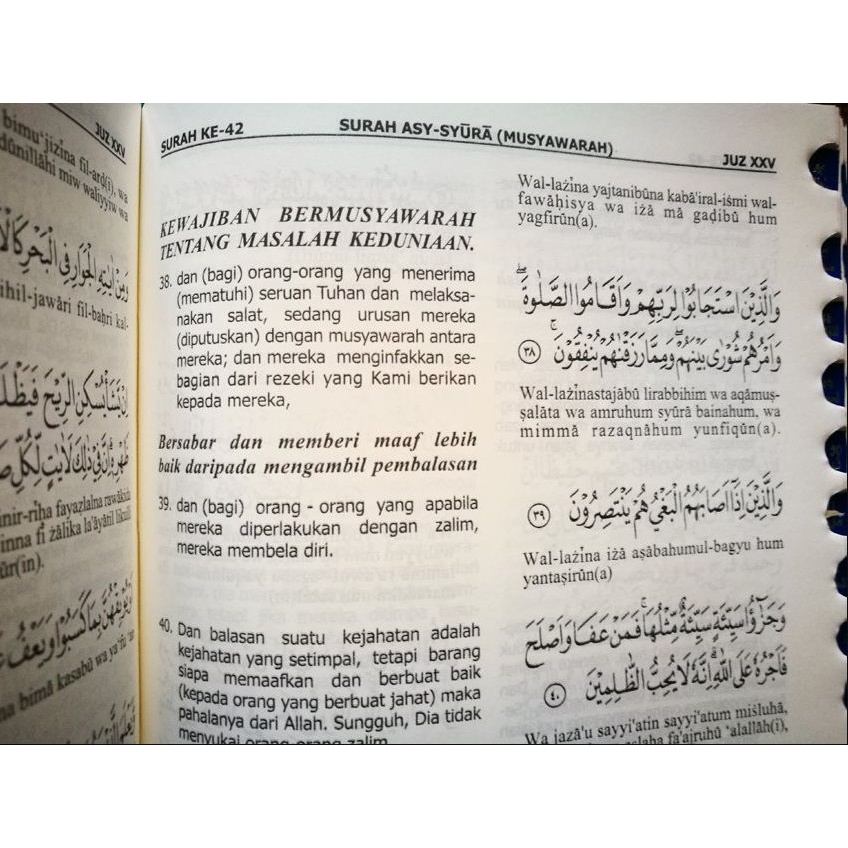 JUZ XXV
bimu'jizīna fil-arḍ(i), wa
dūnillāhi miw waliyyiw wa
وَمِنْ اٰيٰتِهِ الْجَوَارِ فِى الْبَحْرِ
ihil-jawāri fil-baḥri kal-
اِنْ يَّشَأْ يُسْكِنِ الرِّيْحَ
nir-rīḥa fayaẓlalna rawākida
inna fī żālika la'āyātil likulli
ūr(in).
na bimā kasabū wa ya'fu 'an
SURAH KE-42
SURAH ASY-SYŪRĀ (MUSYAWARAH)
JUZ XXV
KEWAJIBAN BERMUSYAWARAH
TENTANG MASALAH KEDUNIAAN.
38. dan (bagi) orang-orang yang menerima
(mematuhi) seruan Tuhan dan melaksa-
nakan salat, sedang urusan mereka
(diputuskan) dengan musyawarah antara
mereka; dan mereka menginfakkan se-
bagian dari rezeki yang Kami berikan
kepada mereka,
Bersabar dan memberi maaf lebih
baik daripada mengambil pembalasan
39. dan (bagi) orang - orang yang apabila
mereka diperlakukan dengan zalim,
mereka membela diri.
40. Dan balasan suatu kejahatan adalah
kejahatan yang setimpal, tetapi barang
siapa memaafkan dan berbuat baik
(kepada orang yang berbuat jahat) maka
pahalanya dari Allah. Sungguh, Dia tidak
menyukai orang-orang zalim.
Wal-lażīna yajtanibūna kabā'iral-iśmi wal-
fawāḥisya wa iżā mā gaḍibū hum
yagfirūn(a).
وَالَّذِيْنَ اسْتَجَابُوْا لِرَبِّهِمْ وَاَقَامُوا الصَّلٰوةَۖ
وَاَمْرُهُمْ شُوْرٰى بَيْنَهُمْۖ وَمِمَّا رَزَقْنٰهُمْ يُنْفِقُوْنَ ۚ ٣٨
Wal-lażīnastajābū lirabbihim wa aqāmuṣ-
ṣalāta wa amruhum syūrā bainahum, wa
mimmā razaqnāhum yunfiqūn(a).
وَالَّذِيْنَ اِذَآ اَصَابَهُمُ الْبَغْيُ هُمْ يَنْتَصِرُوْنَ ٣٩
Wal-lażīna iżā aṣābahumul-bagyu hum
yantaṣirūn(a)
وَجَزٰۤؤُا سَيِّئَةٍ سَيِّئَةٌ مِّثْلُهَاۚ فَمَنْ عَفَا وَاَصْلَحَ
فَاَجْرُهٗ عَلَى اللّٰهِ ۗ اِنَّهٗ لَا يُحِبُّ الظّٰلِمِيْنَ ٤٠
Wa jazā'u sayyi'atin sayyi'atum miśluhā,
aṣlaḥa fa'ajruhū 'alallāh(i),